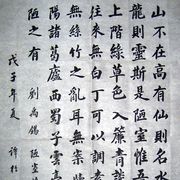 山不在高有仙則名水
龍則靈斯是陋室惟吾
上階綠草色入簾青談
往來無白丁可以調素
無絲竹之亂耳無案
陽諸葛廬西蜀子雲
陋之有
劉禹錫陋室
戊子年夏